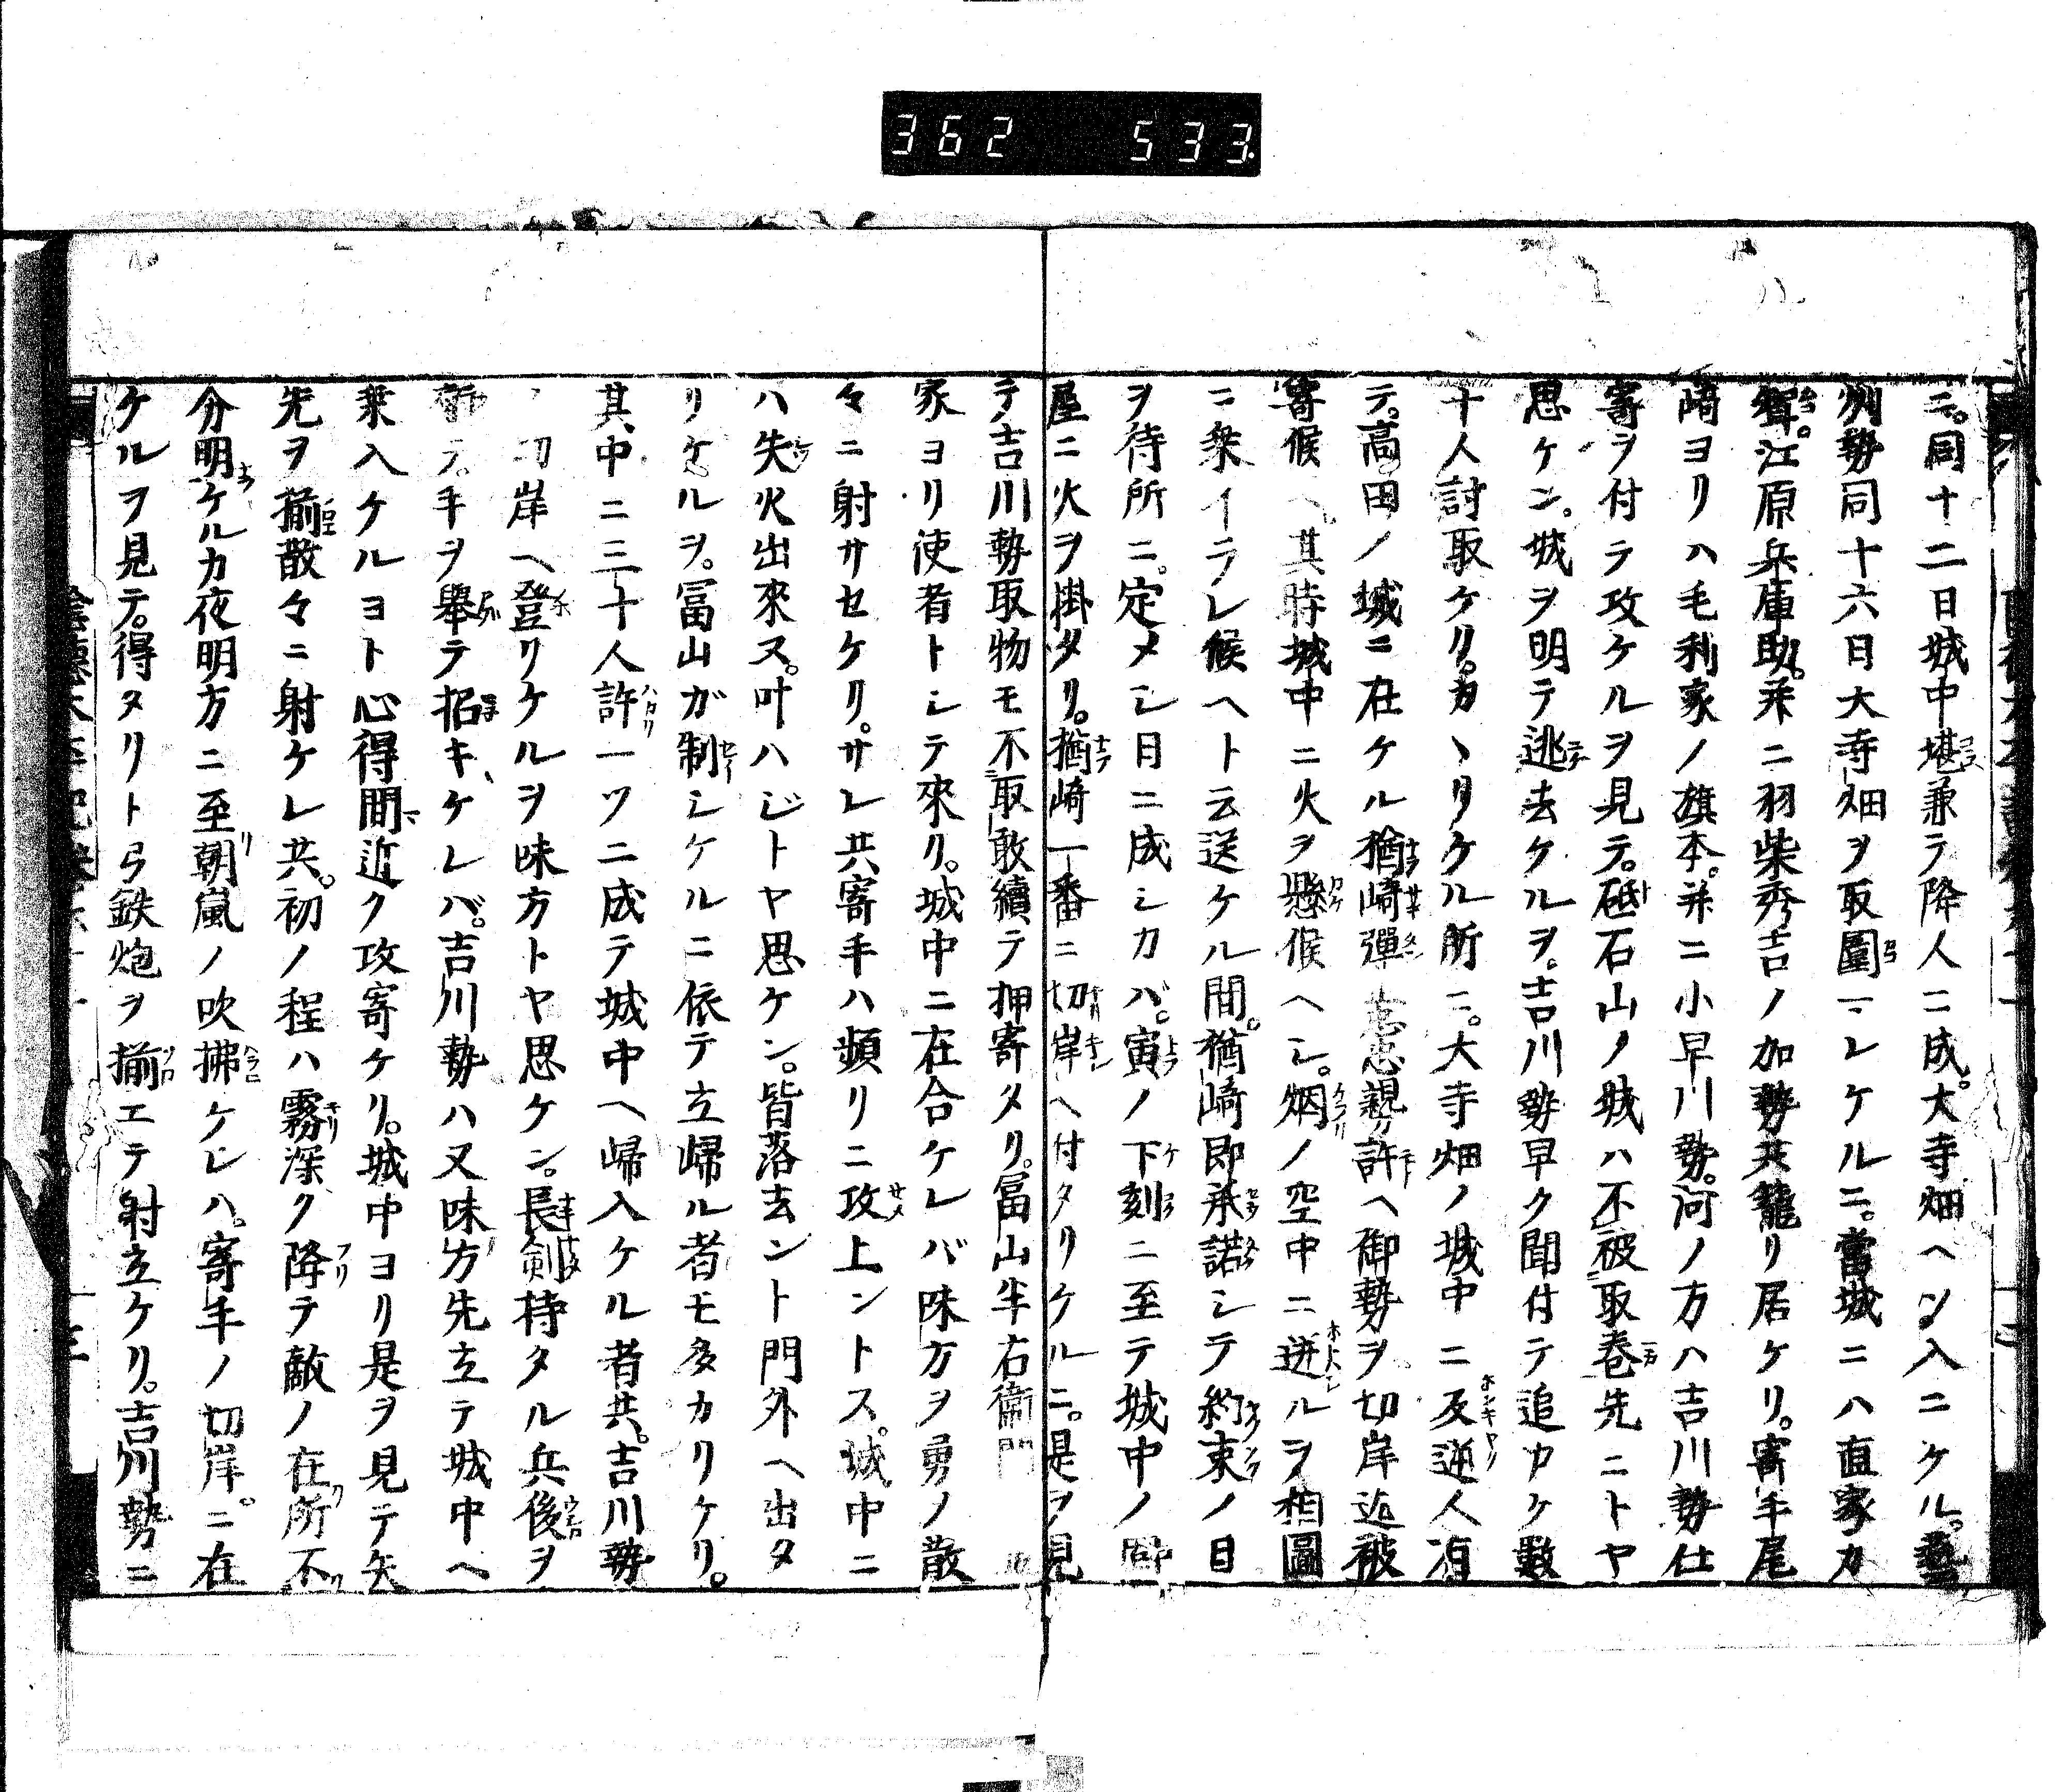 362 533.
ニ。同十二日城中堪兼テ降人ニ成。大寺畑ヘソ入ニケル。藝
州勢同十六日大寺畑ヲ取圍マレケルニ。當城ニハ直家カ
聟。江原兵庫助。并ニ羽柴秀吉ノ加勢共籠リ居ケリ。寄手尾
崎ヨリハ毛利家ノ旗本。并ニ小早川勢。河ノ方ハ吉川勢仕
寄ヲ付テ攻ケルヲ見テ。砥石山ノ城ハ不被取巻先ニトヤ
思ケン。城ヲ明テ逃去ケルヲ。吉川勢早ク聞付テ追カケ數
十人討取ケリ。カヽリケル所ニ。大寺畑ノ城中ニ反逆人有
テ。高田ノ城ニ在ケル楢崎彈正忠親カ許ヘ御勢ヲ切岸近被
寄候ヘ。其時城中ニ火ヲ懸候ヘシ。烟ノ空中ニ迸ルヲ相圖
ニ衆イラレ候ヘト云送ケル間。楢崎即承諾シテ約束ノ日
ヲ待所ニ。定メシ日ニ成シカバ。寅ノ下刻ニ至テ城中ノ
屋ニ火ヲ掛タリ。楢崎一番ニ切岸ヘ付タリケルニ。是ヲ見
テ吉川勢取物モ不取敢續テ押寄タリ。冨山半右衛門
家ヨリ使者トシテ來リ。城中ニ在合ケレバ味方ヲ勇ノ散
々ニ射サセケリ。サレ共寄手ハ頻リニ攻上ントス。城中ニ
ハ失火出來ヌ。叶ハジトヤ思ケン。皆落去ント門外ヘ出タ
リケルヲ。冨山ガ制シケルニ依テ立歸ル者モ多カリケリ。
其中ニ三十人許一ツニ成テ城中ヘ歸入ケル者共。吉川勢
切岸ヘ登リケルヲ味方トヤ思ケン。長剣持タル兵後ヲ
テ。手ヲ擧テ招キケレバ。吉川勢ハ又味方先立テ城中ヘ
乗入ケルヨト心得間近ク攻寄ケリ。城中ヨリ是ヲ見テ矢
先ヲ揃散々ニ射ケレ共。初ノ程ハ霧深ク降テ敵ノ在所不
分明ケルカ夜明方ニ至朝嵐ノ吹拂ケレハ。寄手ノ切岸ニ在
ケルヲ見テ。得タリト弓鉄炮ヲ揃エテ射立ケリ。吉川勢ニ